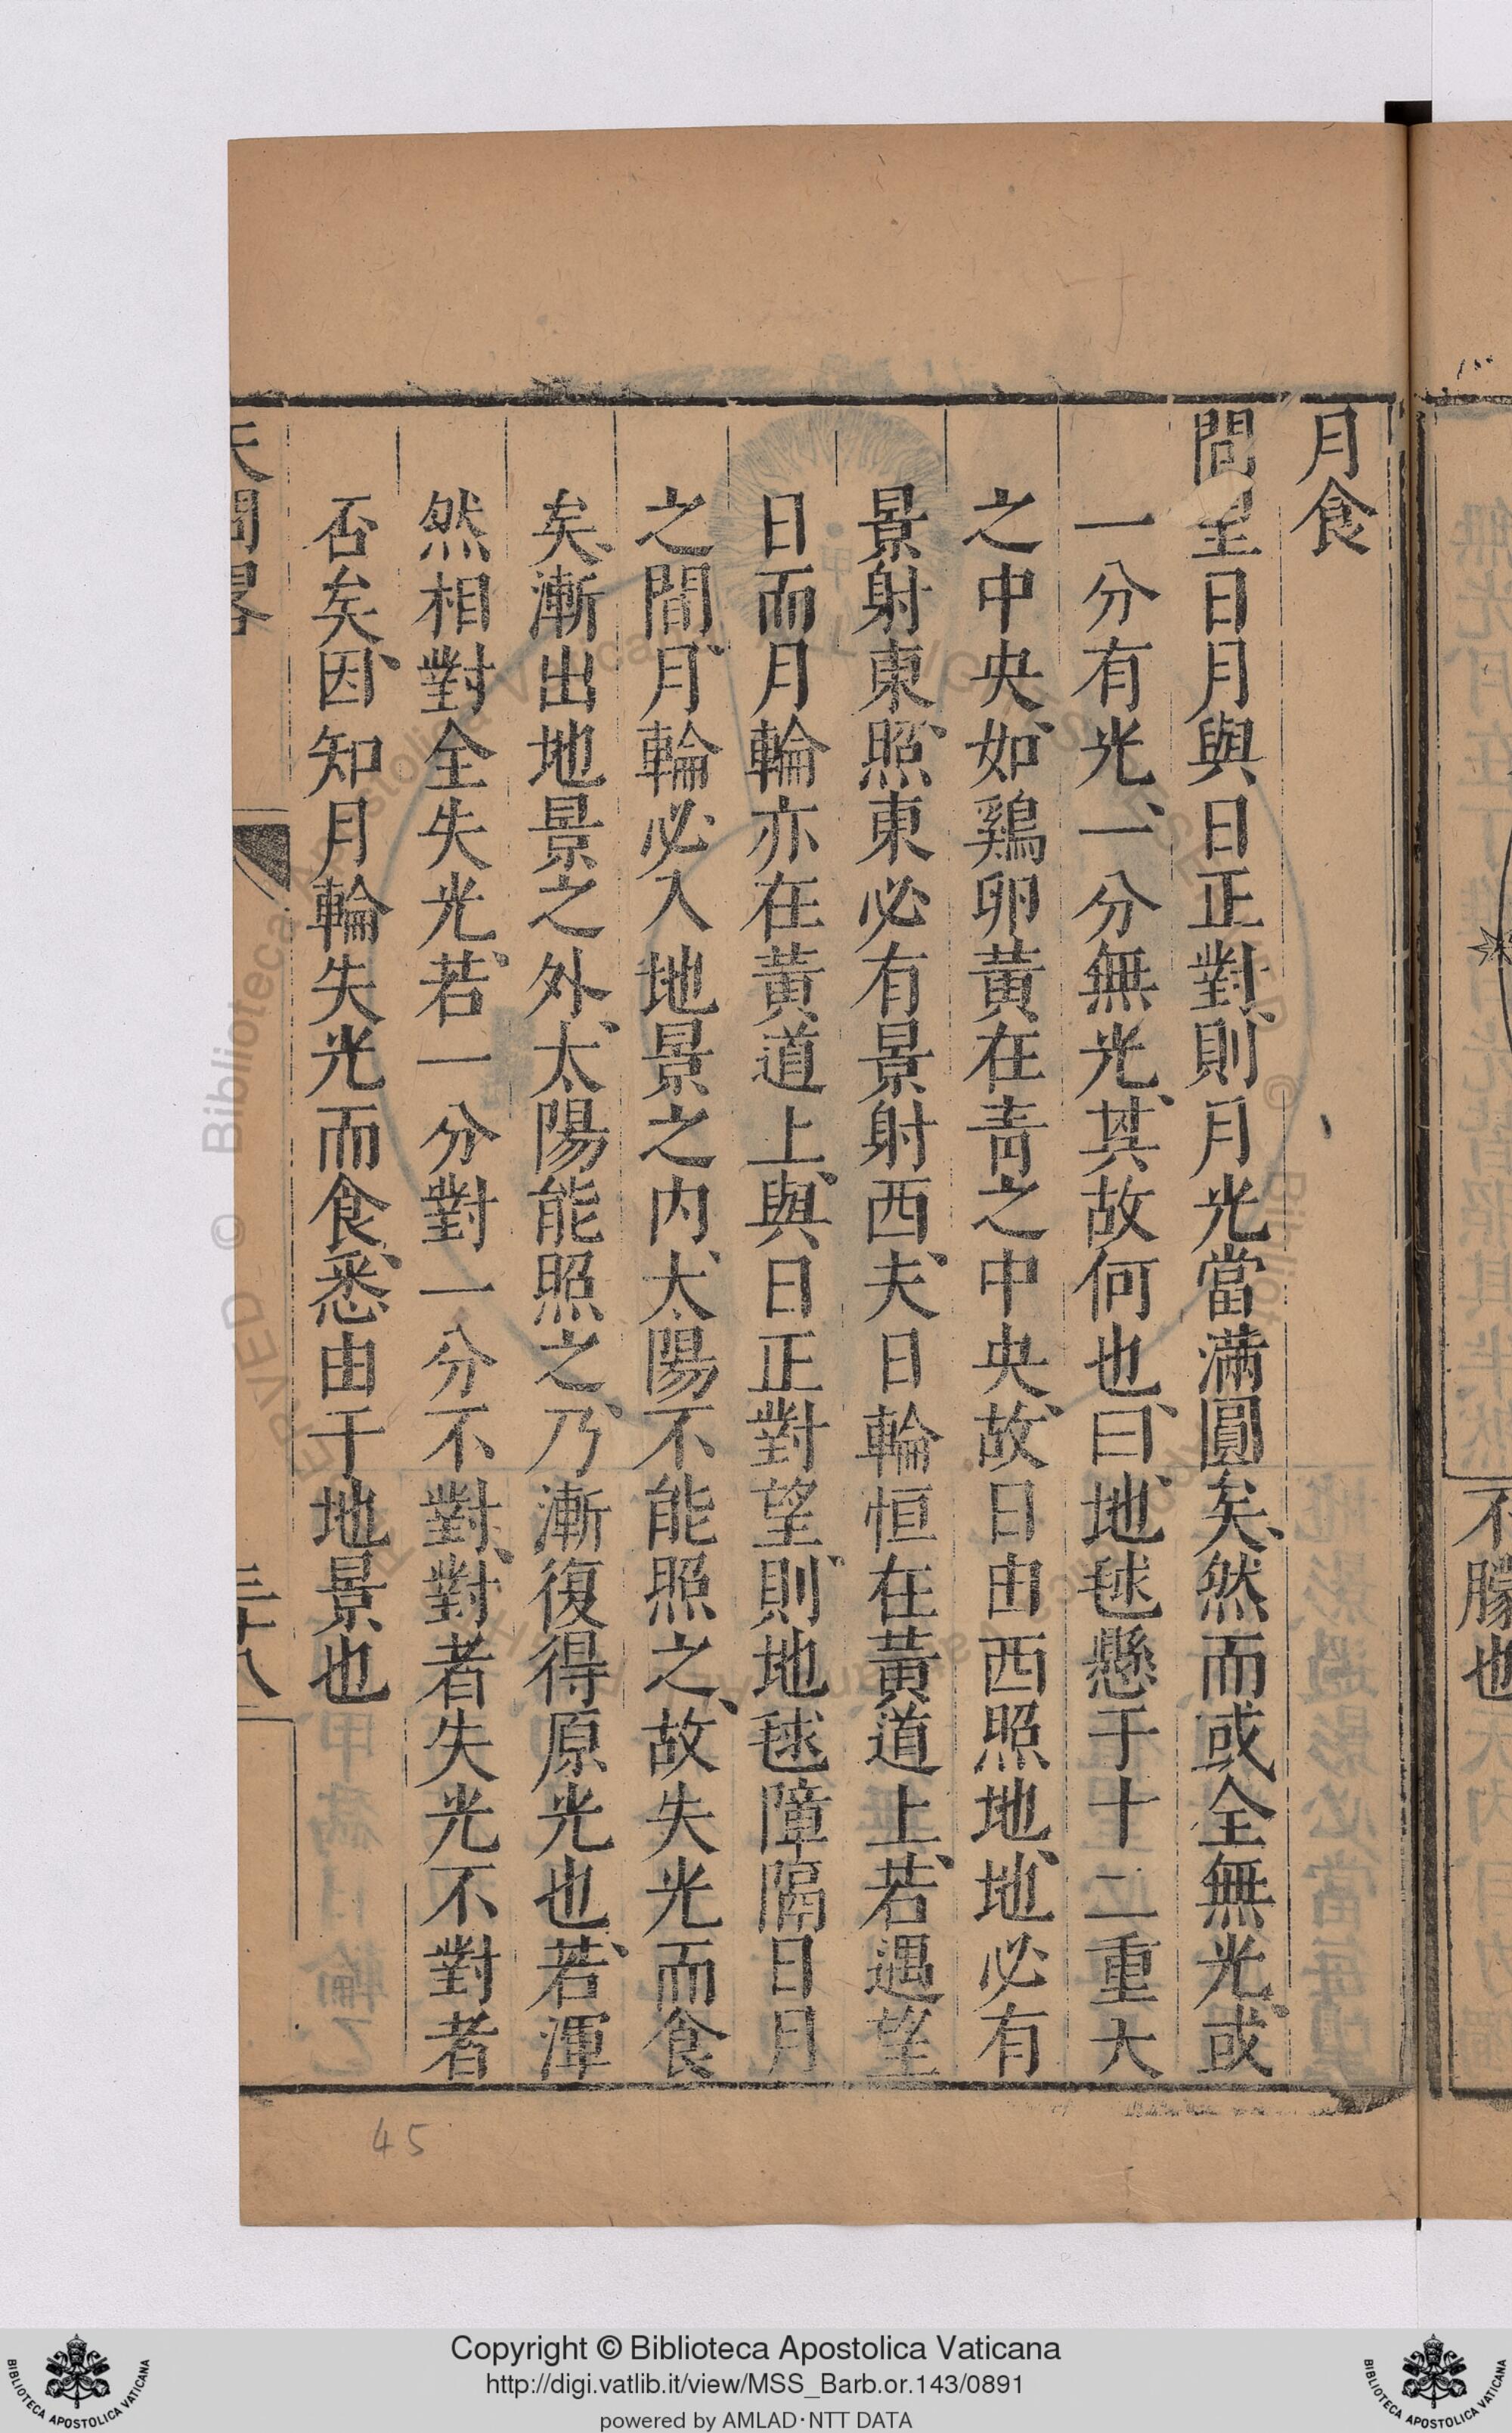 月食
問望日月與日正對、則月光當滿圓矣、然而或全無光、或
一分有光、一分無光、其故何也、曰、地毬懸于十二重大
之中央、如鷄卵黃在靑之中央、故日由西照地、地必有
景射東、照東必有景射西、夫日輪恒在黃道上、若遇望
日而月輪亦在黃道上、與日正對望、則地毬障隔日月
之間、月輪必入地景之內、太陽不能照之、故失光而食
矣、漸出地景之外、太陽能照之、乃漸復得原光也、若渾
然相對全失光、若一分對一分不對、對者失光不對者
否矣、因知月輪失光而食、悉由于地景也
天問畧
三十八
不朦也
45
Copyright © Biblioteca Apostolica Vaticana
http://digi.vatlib.it/view/MSS_Barb.or.143/0891
powered by AMLAD·NTT DATA
BIBLIOTECA APOSTOLICA VATICANA
BIBLIOTECA APOSTOLICA VATICANA